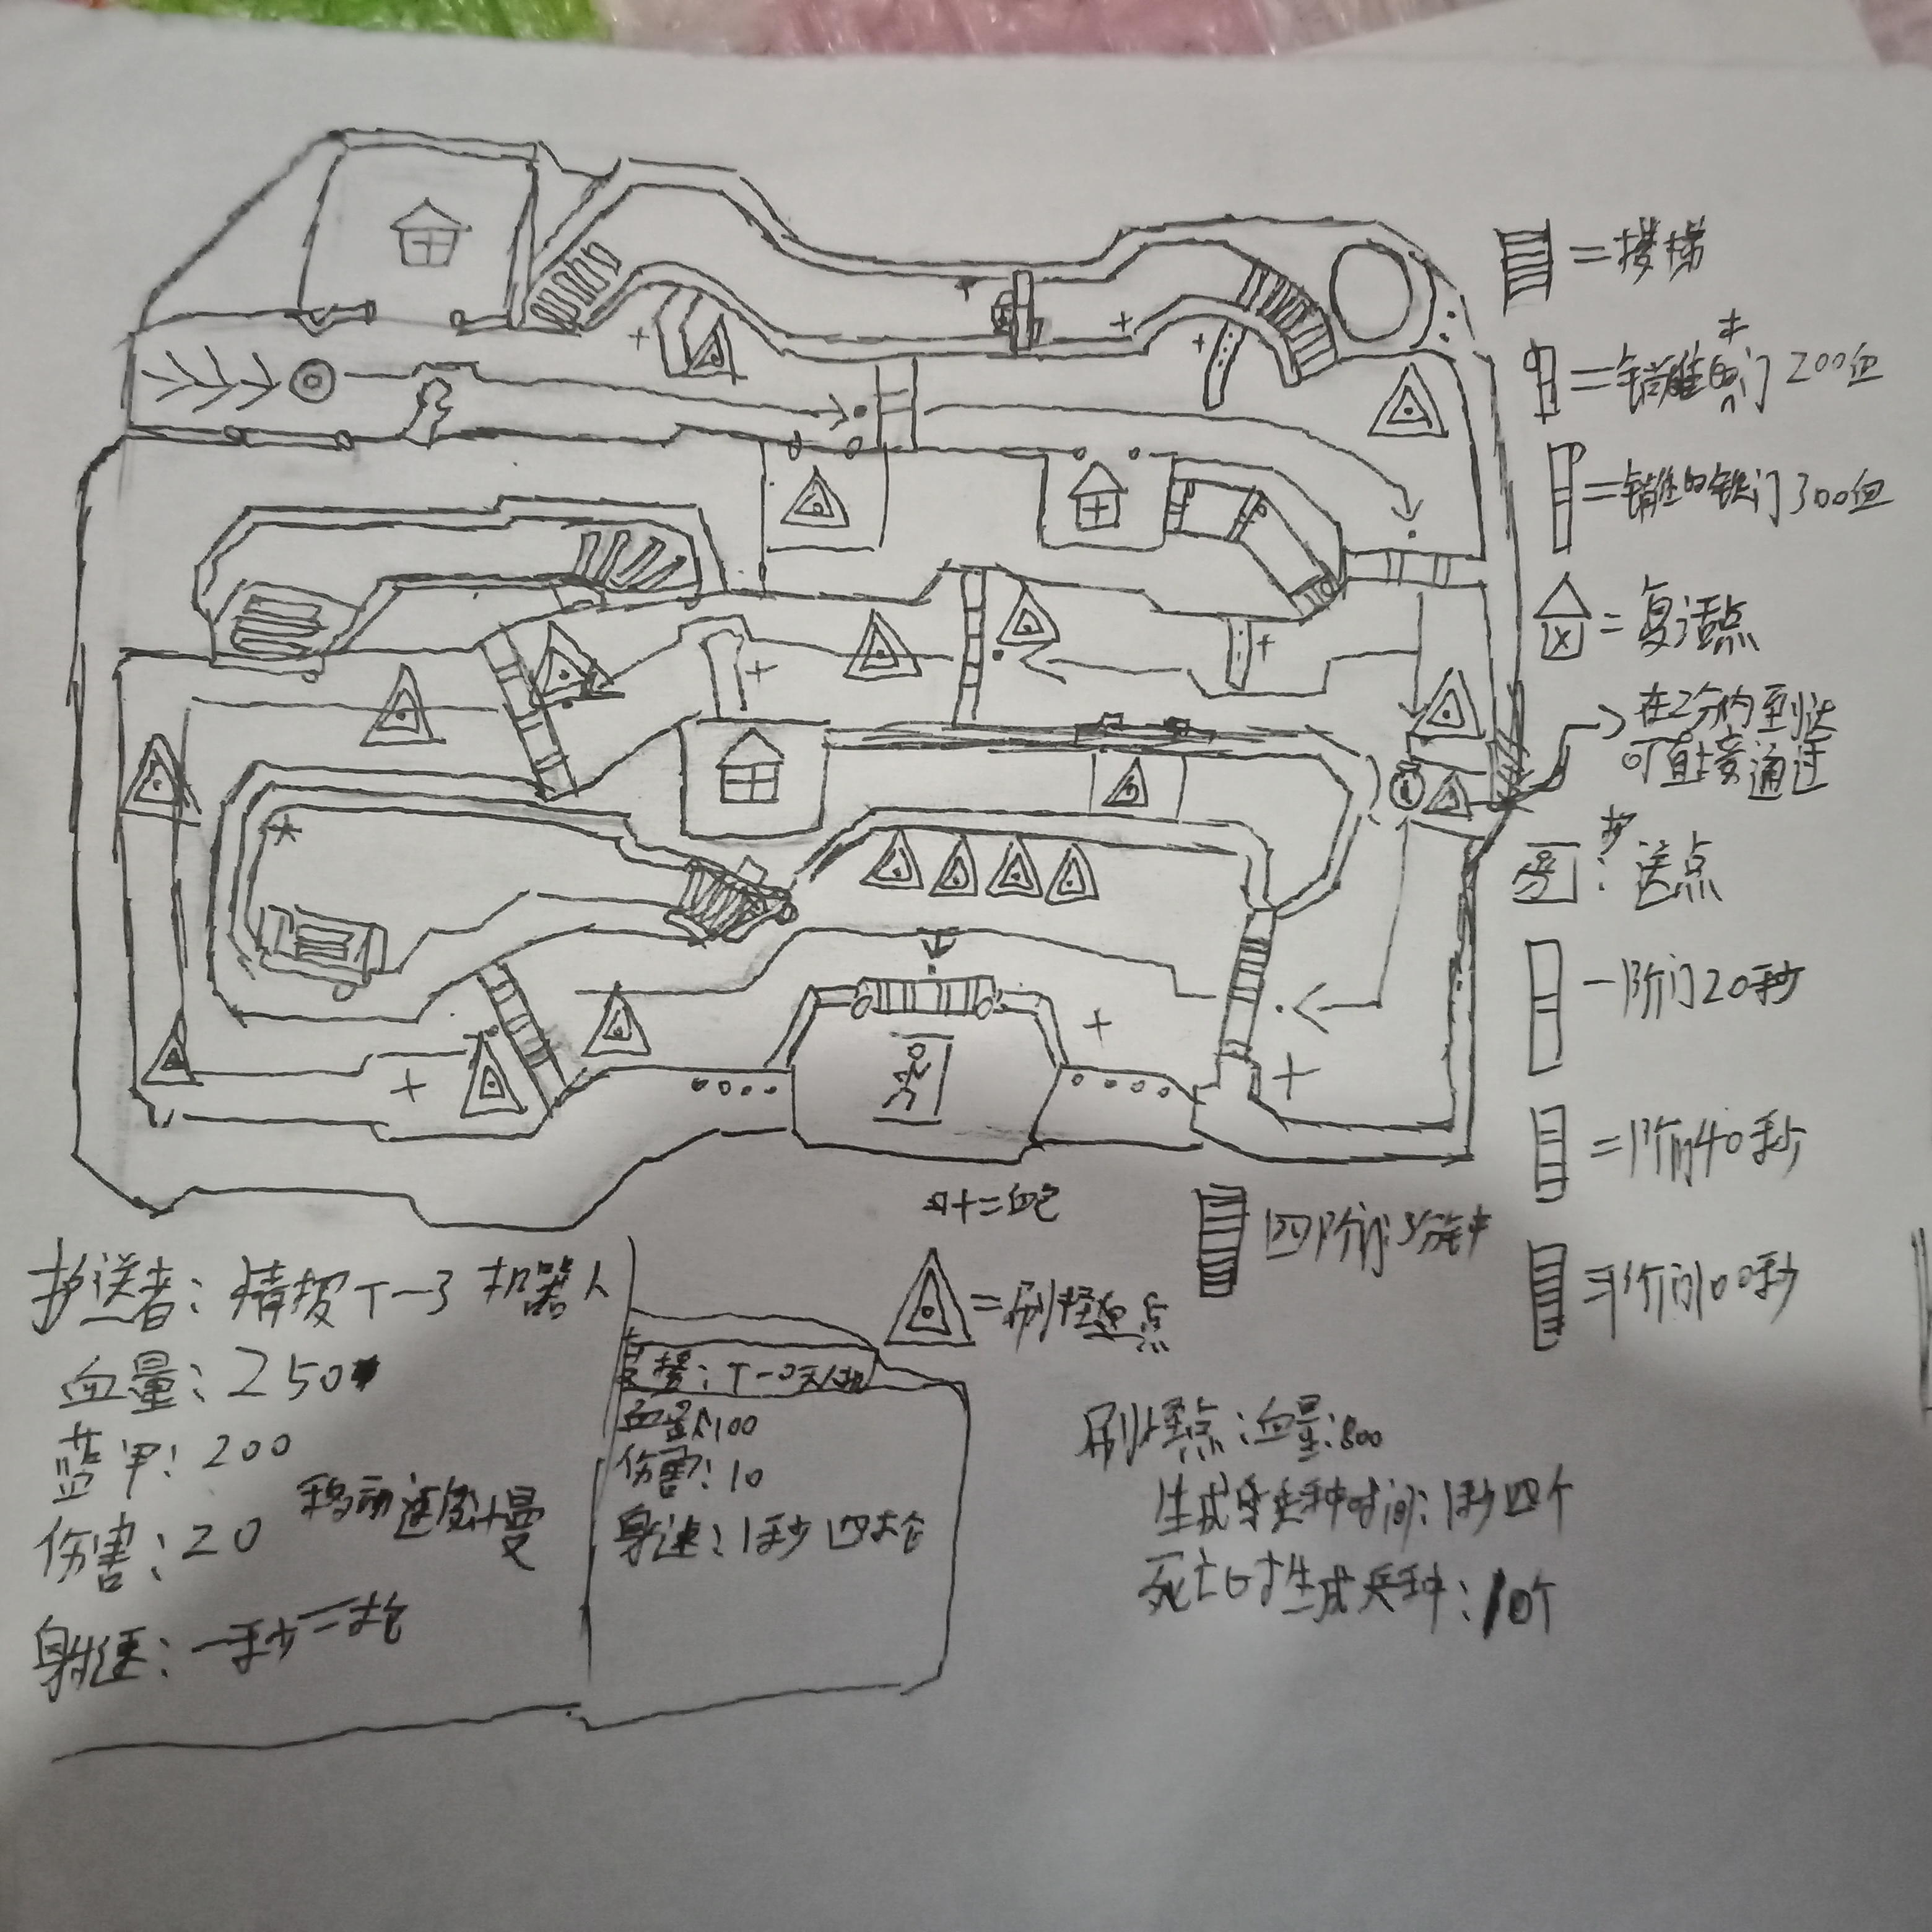 =楼梯
=锁住的木门200血
=锁住的铁门300血
=复活点
在2分内到达
可直接通过
:护送点
一阶门20秒
=阶门40秒
四阶门:3分钟
+=血包
=刷怪点
护送者:精英T-3机器人
血量:250
蓝甲:200
伤害:20
移动速度慢
射速:一秒二枪
支援:T-0
血量:100
伤害:10
射速:1秒四枪
刷怪点:血量:800
生成兵种时间:1秒四个
死亡时生成兵种:10个